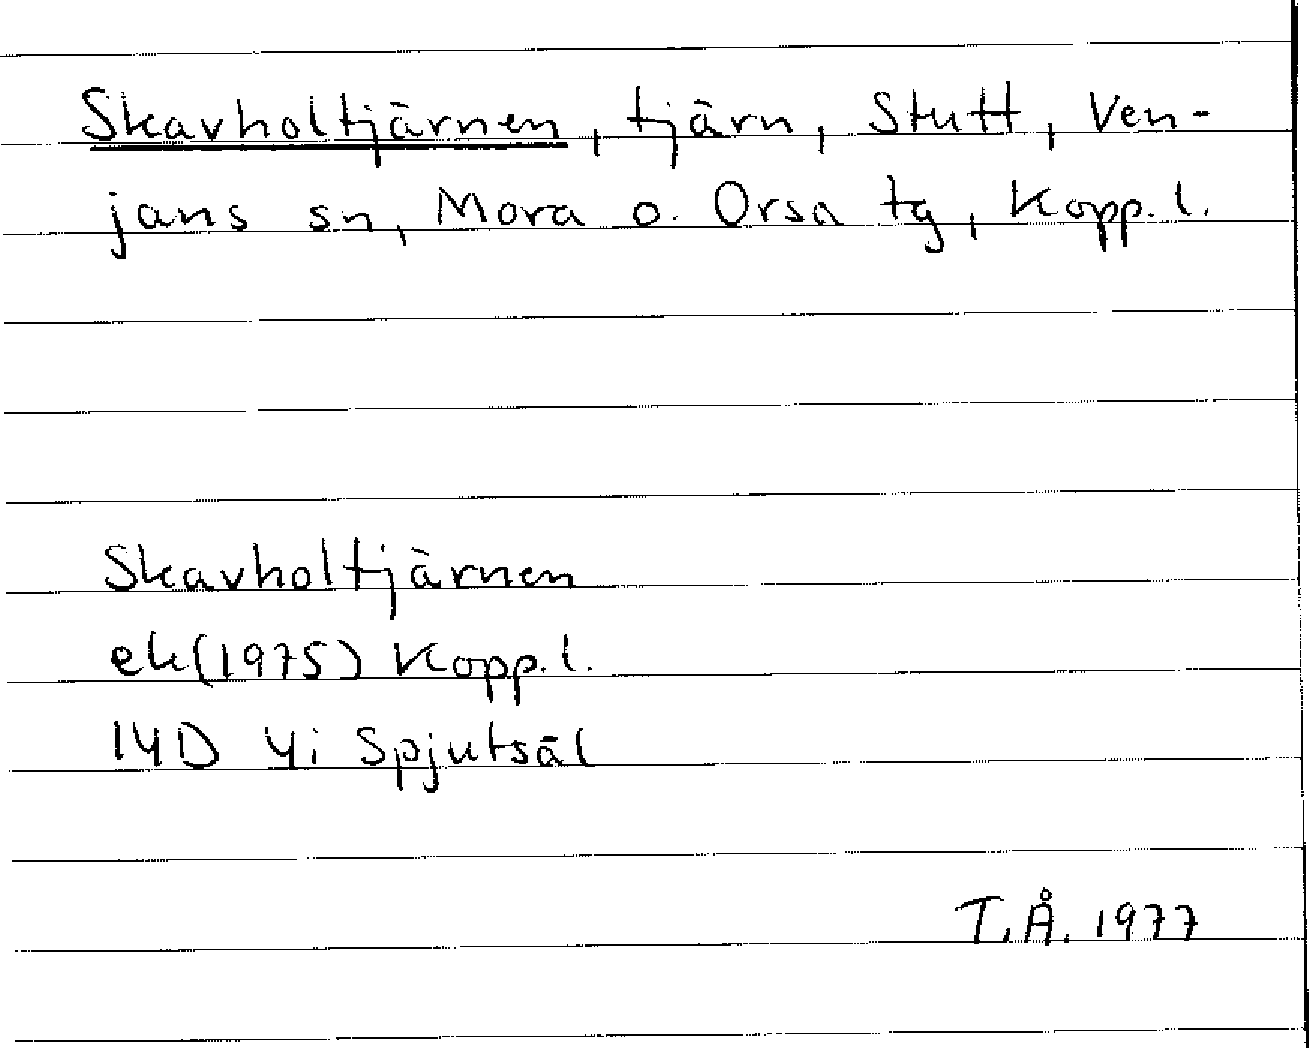 Skavholtjärnen, tjärn, Stutt, Ven-
jans sn, Mora o. Orsa tg, Kopp. l.
Skavholtjärnen
ek (1975) Kopp. l.
14D 4i Spjutsäl
T.Å. 1977